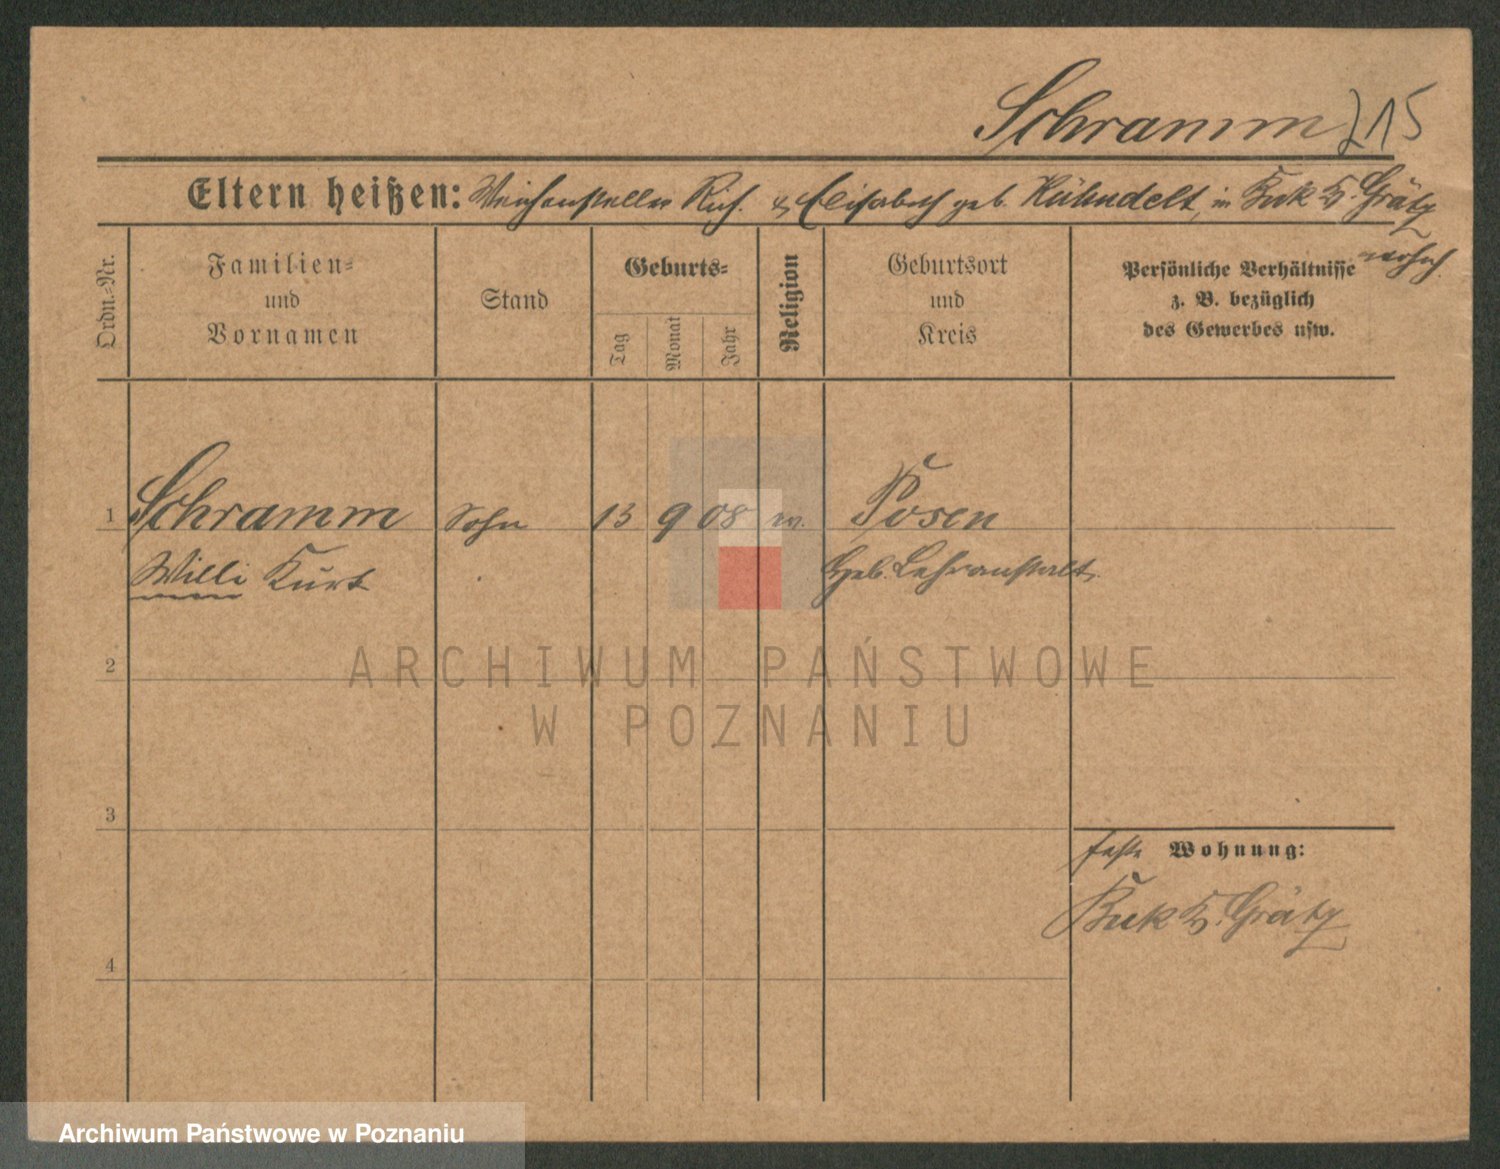 Schramm 215
Eltern heißen: Weichensteller Rich. & Elisabeth geb. Kühndelt, in Buk Kr. Grätz
wohnh.
Ordn.-Nr.
Familien-
und
Vornamen
Stand
Geburts-
Tag
Monat
Jahr
Religion
Geburtsort
und
Kreis
Persönliche Verhältnisse
z. B. bezüglich
des Gewerbes usw.
1 Schramm Sohn 13 9 08 Posen
Willi Kurt Heb. Lehranstalt.
2
ARCHIWUM PAŃSTWOWE
W POZNANIU
3
feste Wohnung:
Buk Kr. Grätz
4
Archiwum Państwowe w Poznaniu